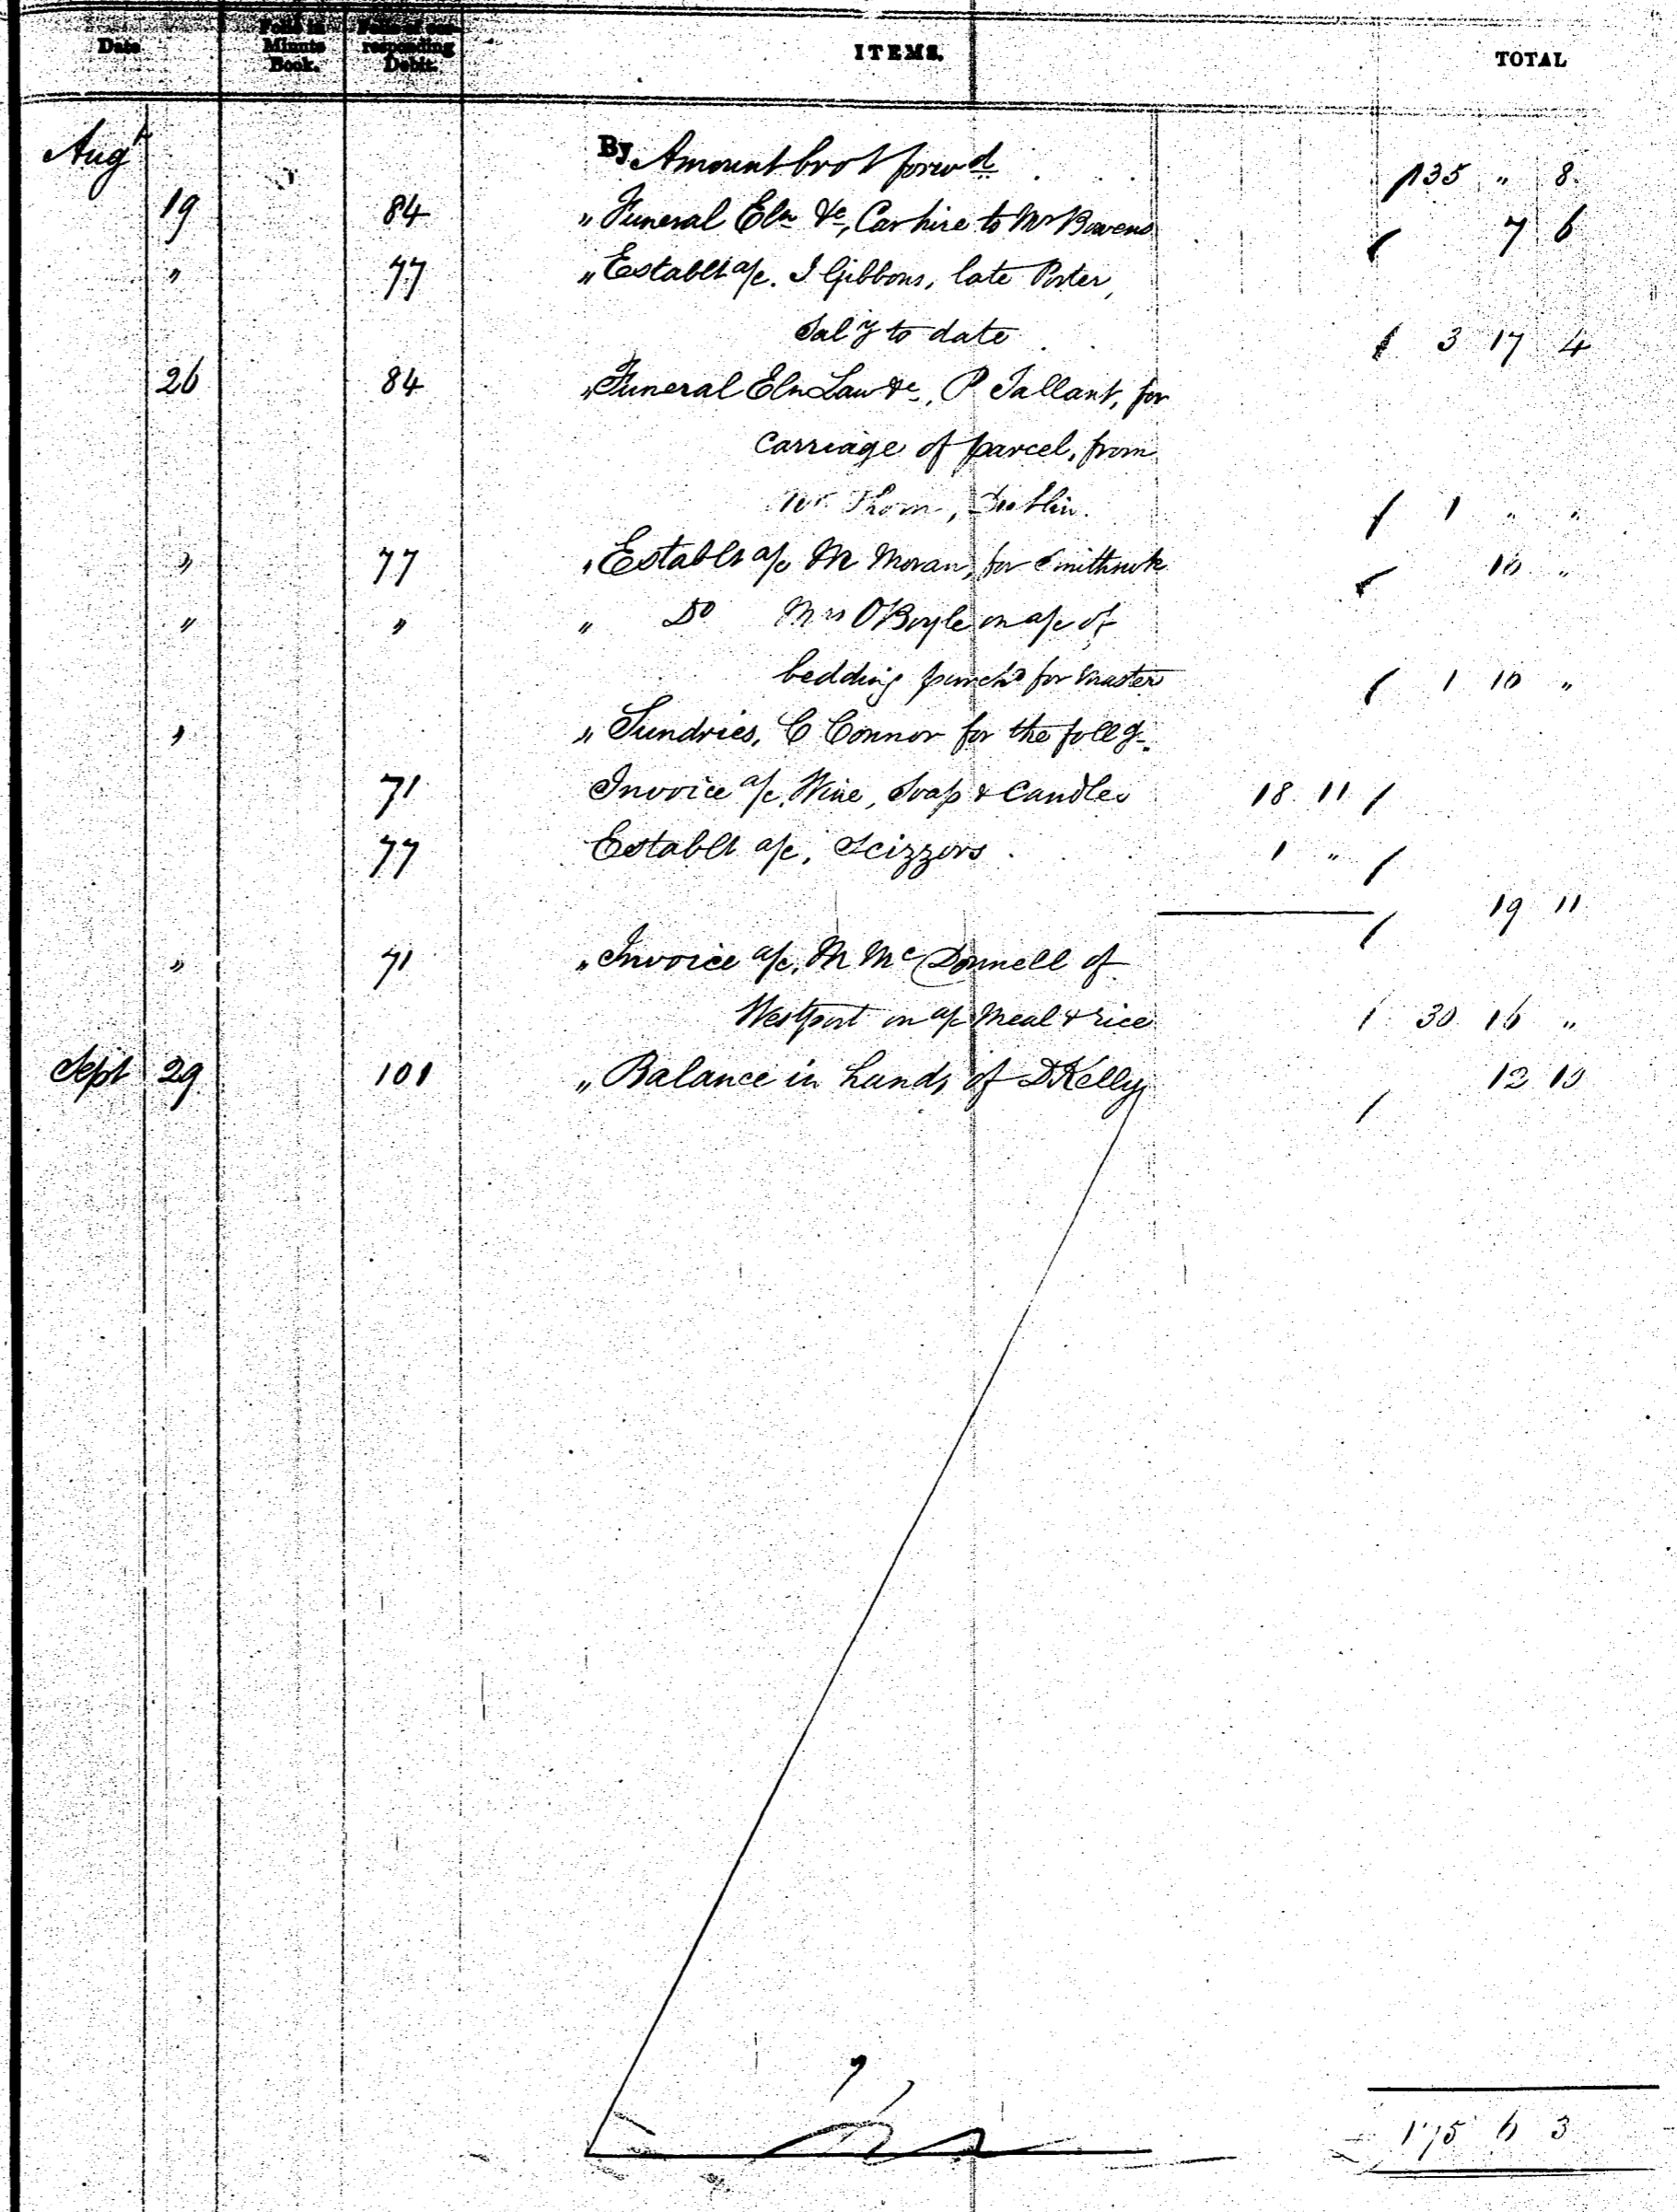 Date
Folio in Minute Book.
Folio of corresponding Debit.
ITEMS.
TOTAL
Augt By Amount brot forwd 135 " 8
19 84 " Funeral Eln &c, Car hire to Mr Bowens 7 6
" 77 " Establt a/c. J Gibbons, late Porter,
Saly to date 3 17 4
26 84 " Funeral Eln Law &c, P Tallant, for
Carriage of parcel, from
Mr Thom, Dublin. 1 " "
" 77 " Establt a/c M Moran, for Smithwork 16 "
" " " Do Mrs O'Boyle on a/c of
bedding purchd for Master 1 16 "
" " Sundries, C Connor for the follg.
71 Invoice a/c, Wine, Soap & Candles 18 11
77 Establt a/c, Scizzors 1 "
19 11
" 71 " Invoice a/c, M McDonnell of
Westport on a/c Meal & rice 30 16 "
Sept 29 101 " Balance in hands of D Kelly 12 10
175 6 3